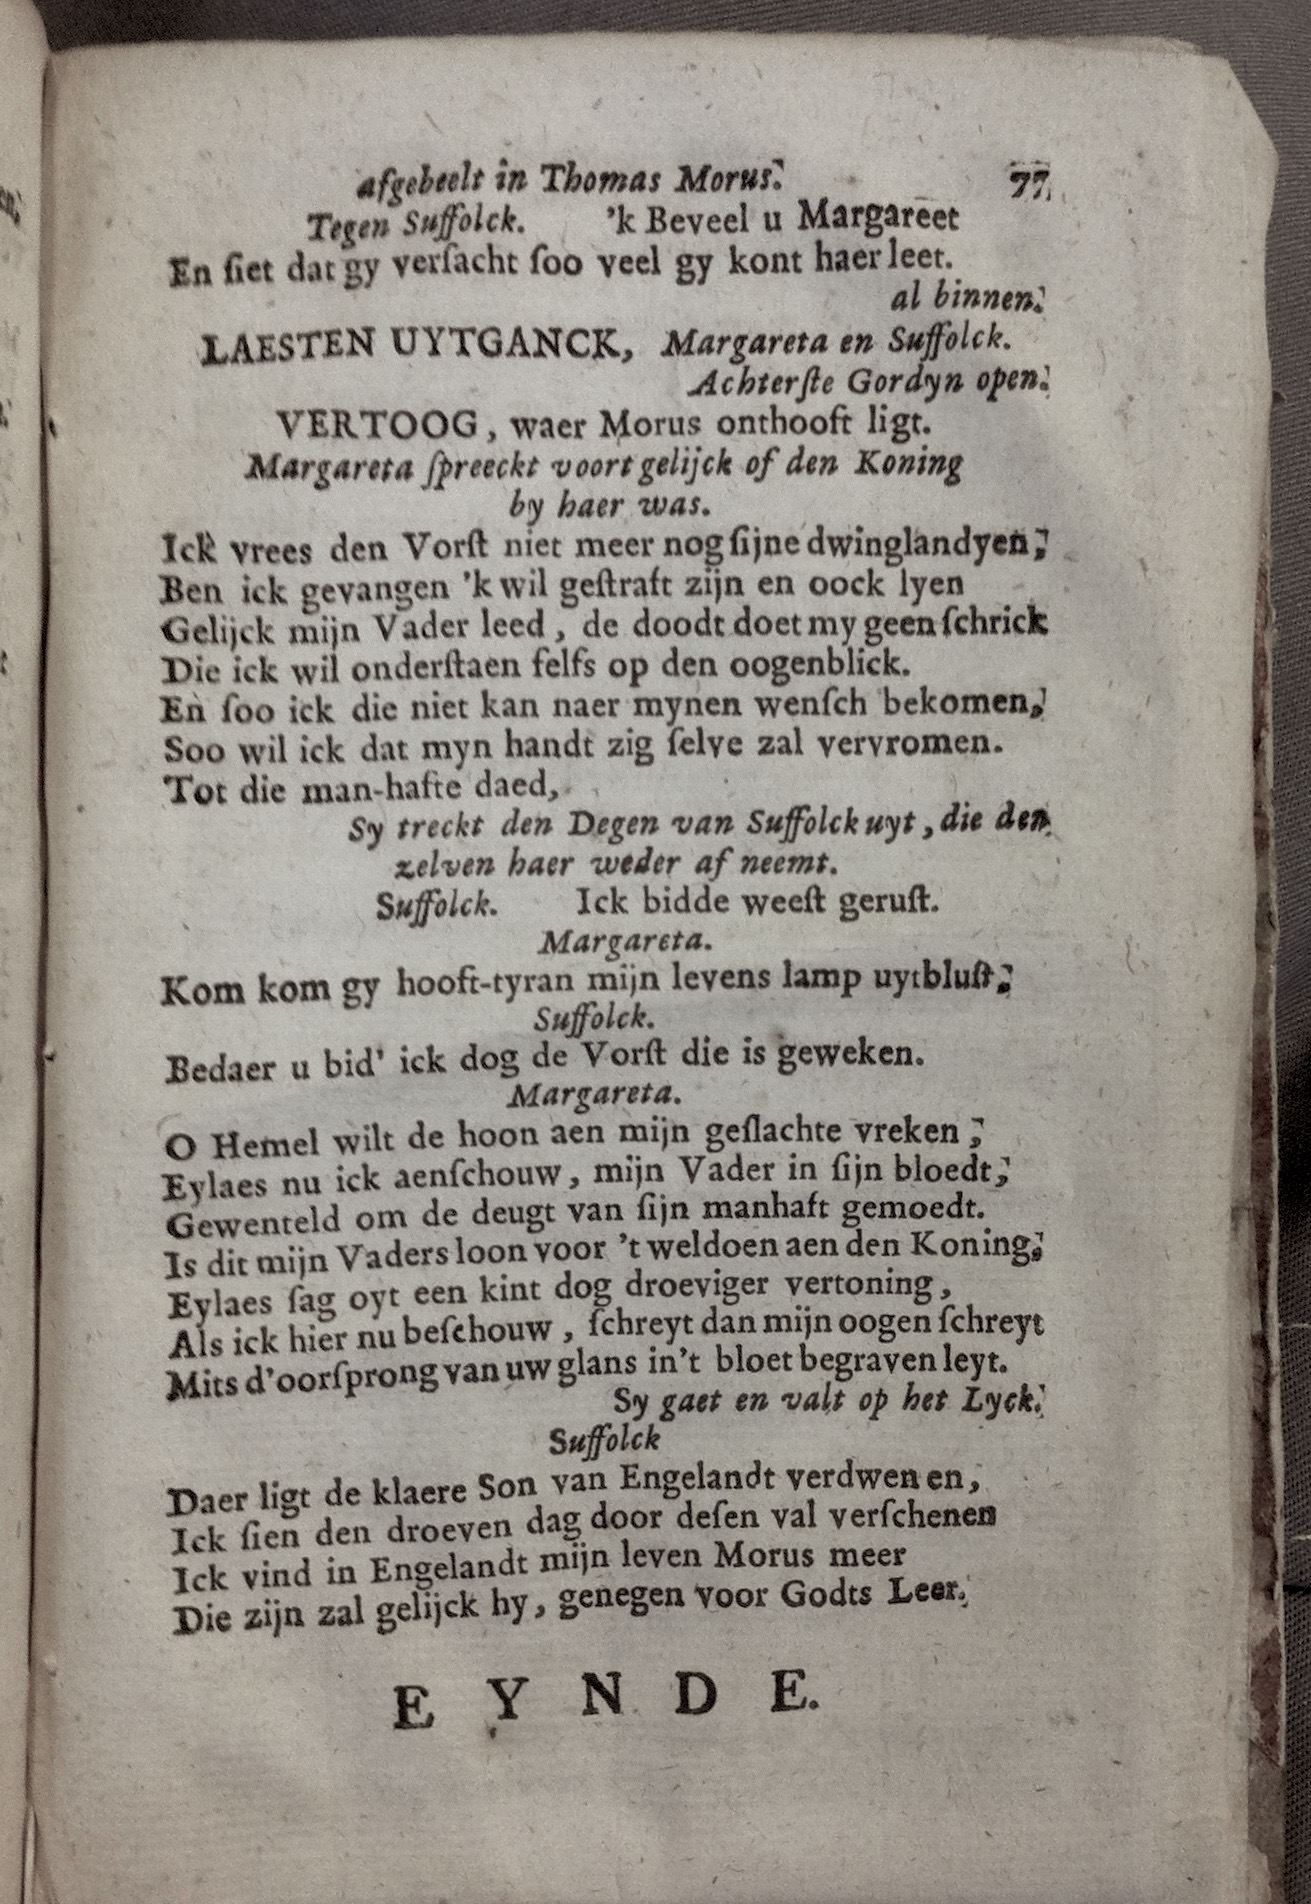 afgebeelt in Thomas Morus. 77
Tegen Suffolck. 'k Beveel u Margareet
En ſiet dat gy verſacht ſoo veel gy kont haer leet.
al binnen.
LAESTEN UYTGANCK, Margareta en Suffolck.
Achterſte Gordyn open.
VERTOOG, waer Morus onthooft ligt.
Margareta ſpreeckt voort gelijck of den Koning
by haer was.
Ick vrees den Vorſt niet meer nog ſijne dwinglandyen,
Ben ick gevangen 'k wil geſtraft zijn en oock lyen
Gelijck mijn Vader leed, de doodt doet my geen ſchrick
Die ick wil onderſtaen ſelfs op den oogenblick.
En ſoo ick die niet kan naer mynen wenſch bekomen,
Soo wil ick dat myn handt zig ſelve zal vervromen.
Tot die man-hafte daed,
Sy treckt den Degen van Suffolck uyt, die den
zelven haer weder af neemt.
Suffolck. Ick bidde weeſt geruſt.
Margareta.
Kom kom gy hooft-tyran mijn levens lamp uytbluſt,
Suffolck.
Bedaer u bid' ick dog de Vorſt die is geweken.
Margareta.
O Hemel wilt de hoon aen mijn geſlachte vreken,
Eylaes nu ick aenſchouw, mijn Vader in ſijn bloedt,
Gewenteld om de deugt van ſijn manhaft gemoedt.
Is dit mijn Vaders loon voor 't weldoen aen den Koning,
Eylaes ſag oyt een kint dog droeviger vertoning,
Als ick hier nu beſchouw, ſchreyt dan mijn oogen ſchreyt
Mits d'oorſprong van uw glans in't bloet begraven leyt.
Sy gaet en valt op het Lyck.
Suffolck
Daer ligt de klaere Son van Engelandt verdwenen,
Ick ſien den droeven dag door deſen val verſchenen
Ick vind in Engelandt mijn leven Morus meer
Die zijn zal gelijck hy, genegen voor Godts Leer.
EYNDE.